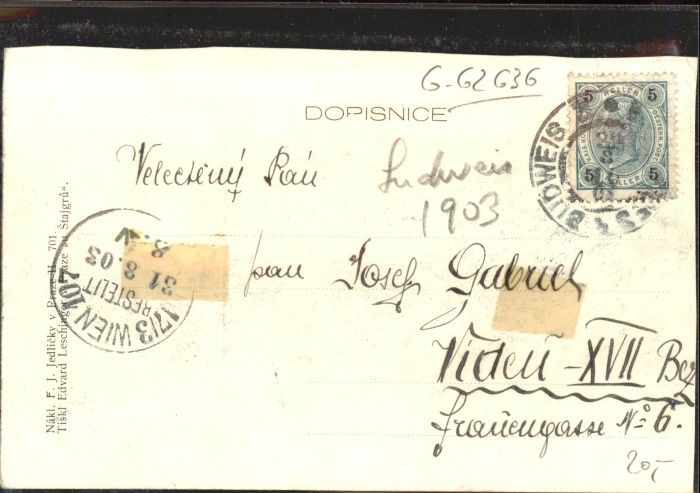 G-62636
DOPISNICE
5 HELLER 5
5 HELLER 5
BUDWEIS
Velectěný Pán
Ludweis
1903
pan Josef Gabriel
Vídeň - XVII Bez
Frauengasse No 6.
20,-
17/3 WIEN 107
BESTELLT
31.8.03
8.V
Nákl. F. J. Jedličky v Praze-II. 701.
Tiskl Edvard Leschinger, Praze „u Štajgrů“.